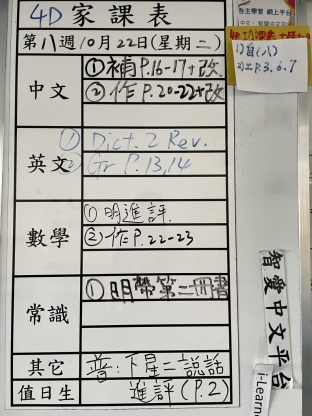 4D 家課表
第八週10月22日(星期二)
中文
①補P.16-17+改
②作P.20-22+改
英文
① Dict. 2 Rev.
② Gr P.13,14
數學
①明進評
②作P.22-23
常識
①明帶第二冊書
其它
普:下星二説話
值日生
進評(P.2)
自主學習 網上平台
1)自(八)
2)工P.3,6,7
智愛中文平台
i-Learn